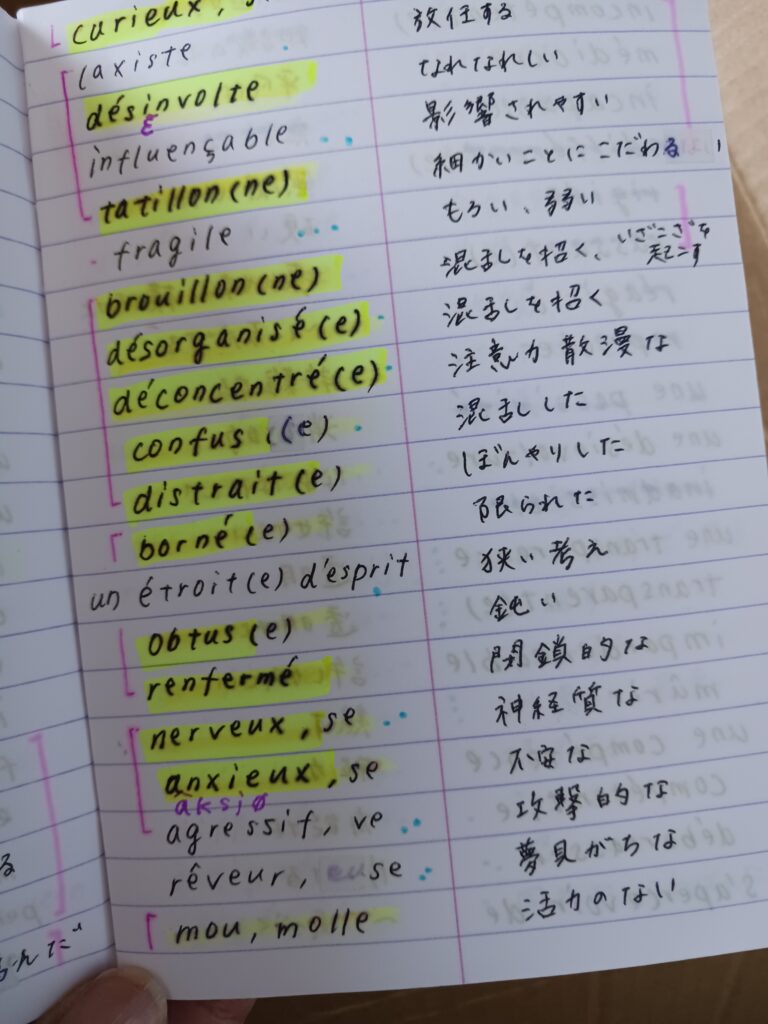 curieux, s
laxiste 放任する
désinvolte なれなれしい
ɛ
influençable 影響されやすい
tatillon(ne) 細かいことにこだわる
fragile もろい、弱い
brouillon(ne) 混乱を招く、いざこざを起こす
désorganisé(e) 混乱を招く
déconcentré(e) 注意力散漫な
confus(e) 混乱した
distrait(e) ぼんやりした
borné(e) 限られた
un étroit(e) d'esprit 狭い考え
obtus(e) 鈍い
renfermé 閉鎖的な
nerveux, se 神経質な
anxieux, se 不安な
aksjø
agressif, ve 攻撃的な
rêveur, euse 夢見がちな
mou, molle 活力のない